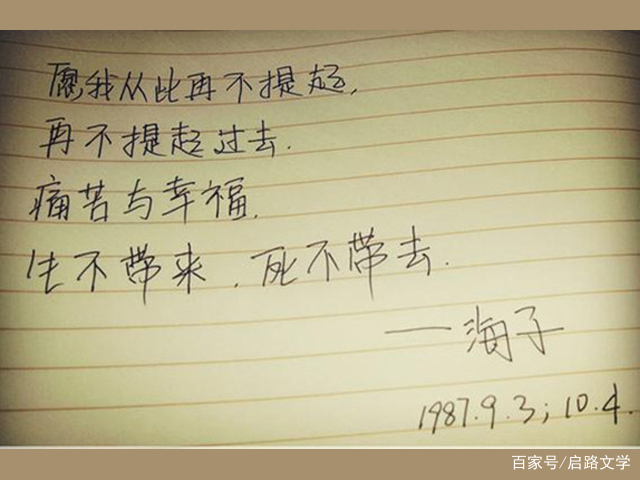 愿我从此再不提起,
再不提起过去.
痛苦与幸福.
生不带来.死不带去.
——海子
1987.9.3;10.4.
百家号/启路文学